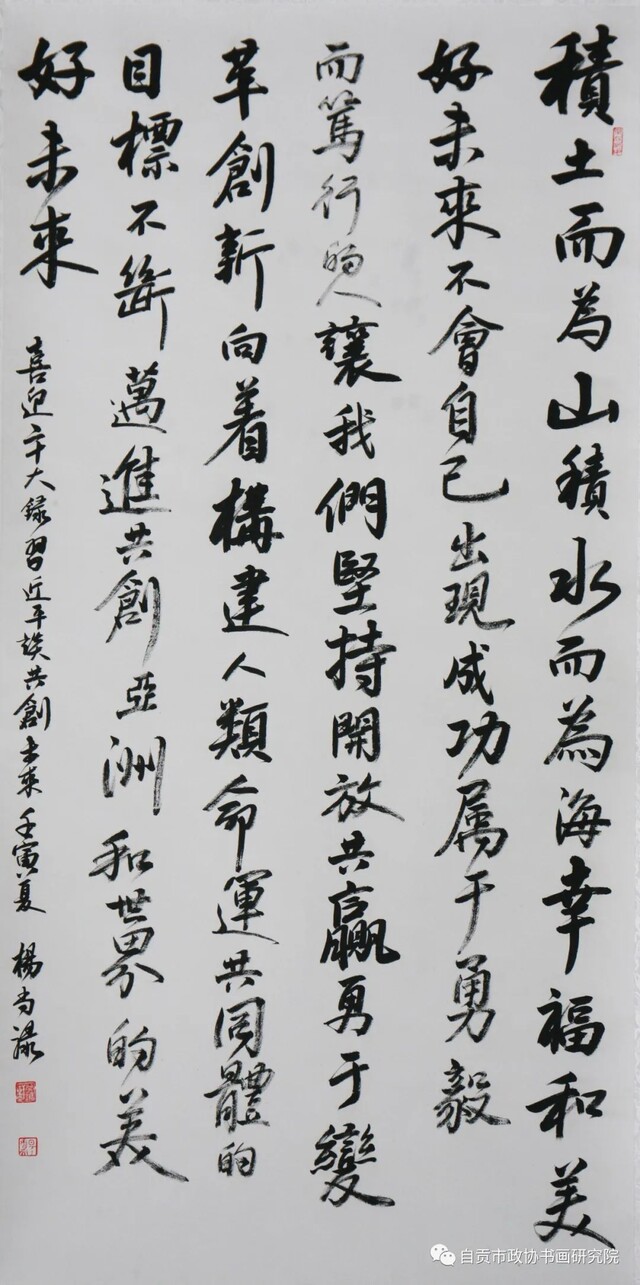 積土而為山積水而為海幸福和美
好未來不會自己出現成功属于勇毅
而篤行的人讓我們堅持開放共贏勇于變
革創新向着構建人類命運共同體的
目標不斷邁進共創亞洲和世界的美
好未來
喜迎二十大録習近平談共創未來壬寅夏 楊尚渌
自贡市政协书画研究院